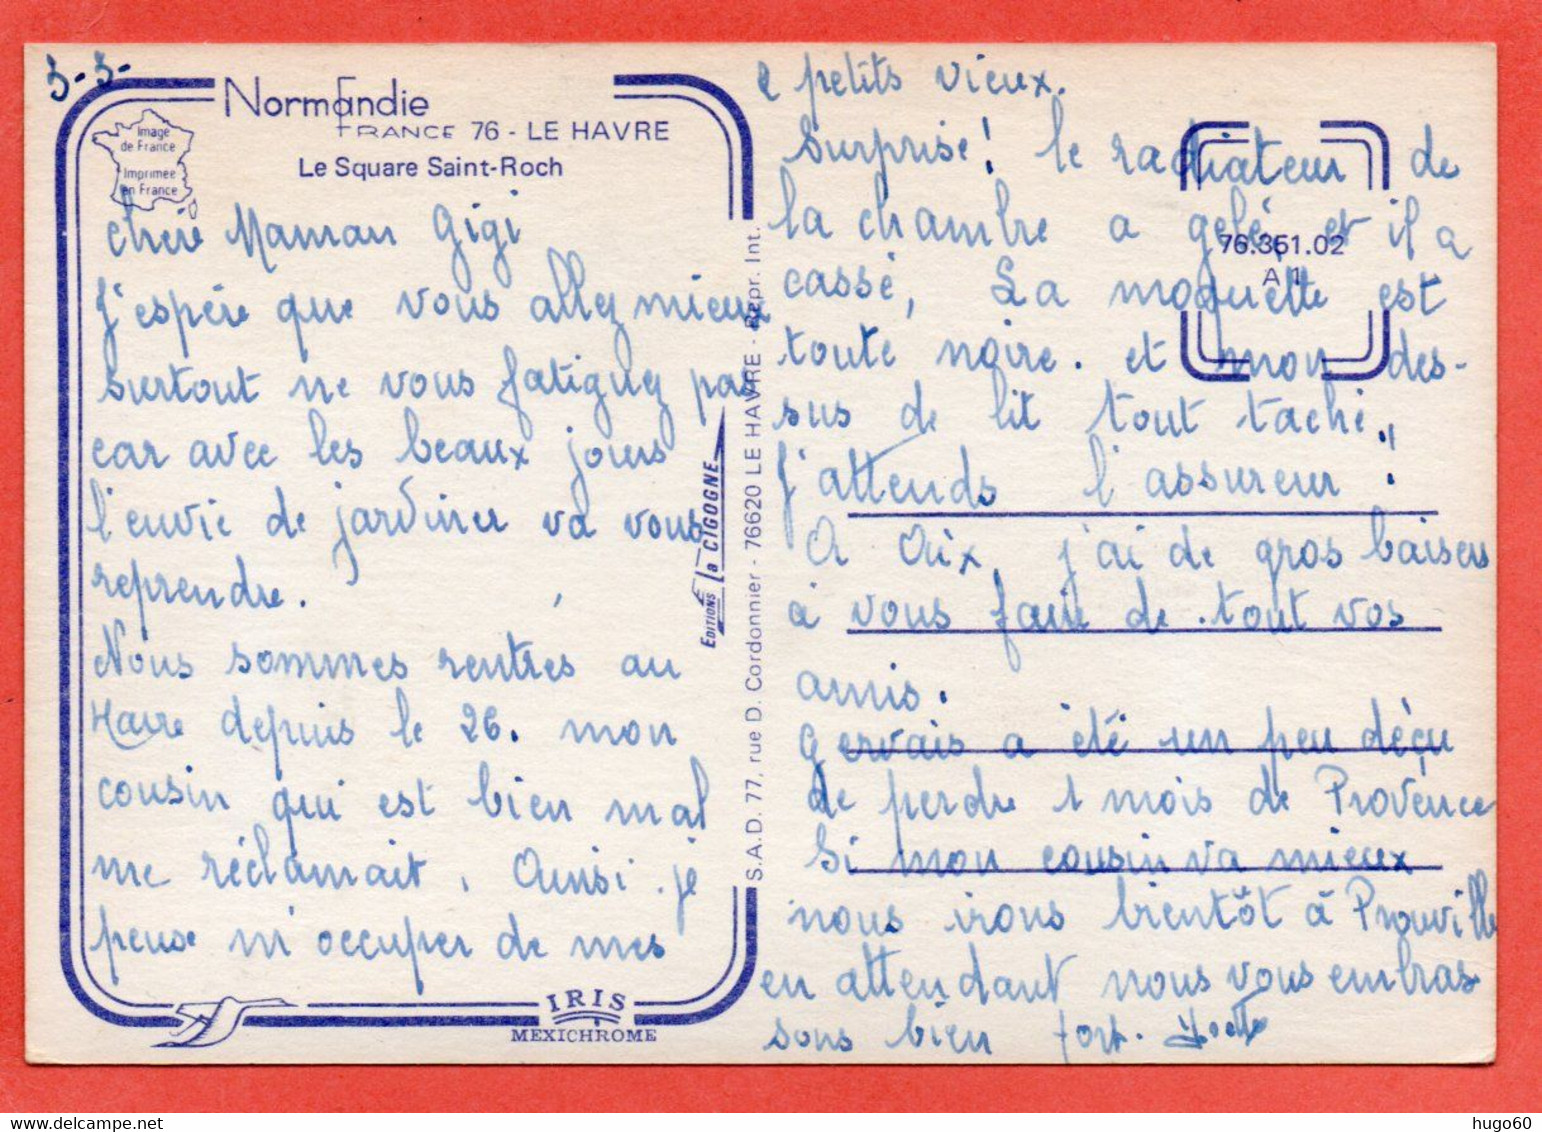 3-3-
Normandie
FRANCE 76 - LE HAVRE
Le Square Saint-Roch
Image
de France
Imprimée
en France
chère Maman Gigi
J'espère que vous allez mieux
surtout ne vous fatiguez pas
car avec les beaux jours
l'envie de jardiner va vous
reprendre.
Nous sommes rentrés au
Havre depuis le 26. mon
cousin qui est bien mal
me réclamait, Ainsi je
peuse m'occuper de mes
IRIS
MEXICHROME
EDITIONS la CIGOGNE
S.A.D. 77, rue D. Cordonnier - 76620 LE HAVRE - Repr. Int.
2 petits vieux.
Surprise! le radiateur de
la chambre a gelé, et il a
cassé, La moquette est
toute noire. et mon des-
sus de lit tout taché,,
J'attends l'assureur!
A Aix, j'ai de gros baisers
à vous faire de tout vos
amis.
Gervais a été un peu déçu
de perdre 1 mois de Provence
Si mon cousin va mieux
nous irons bientôt à Prouville
en attendant nous vous embras
sons bien fort. Yvette
76.351.02
A 1
hugo60